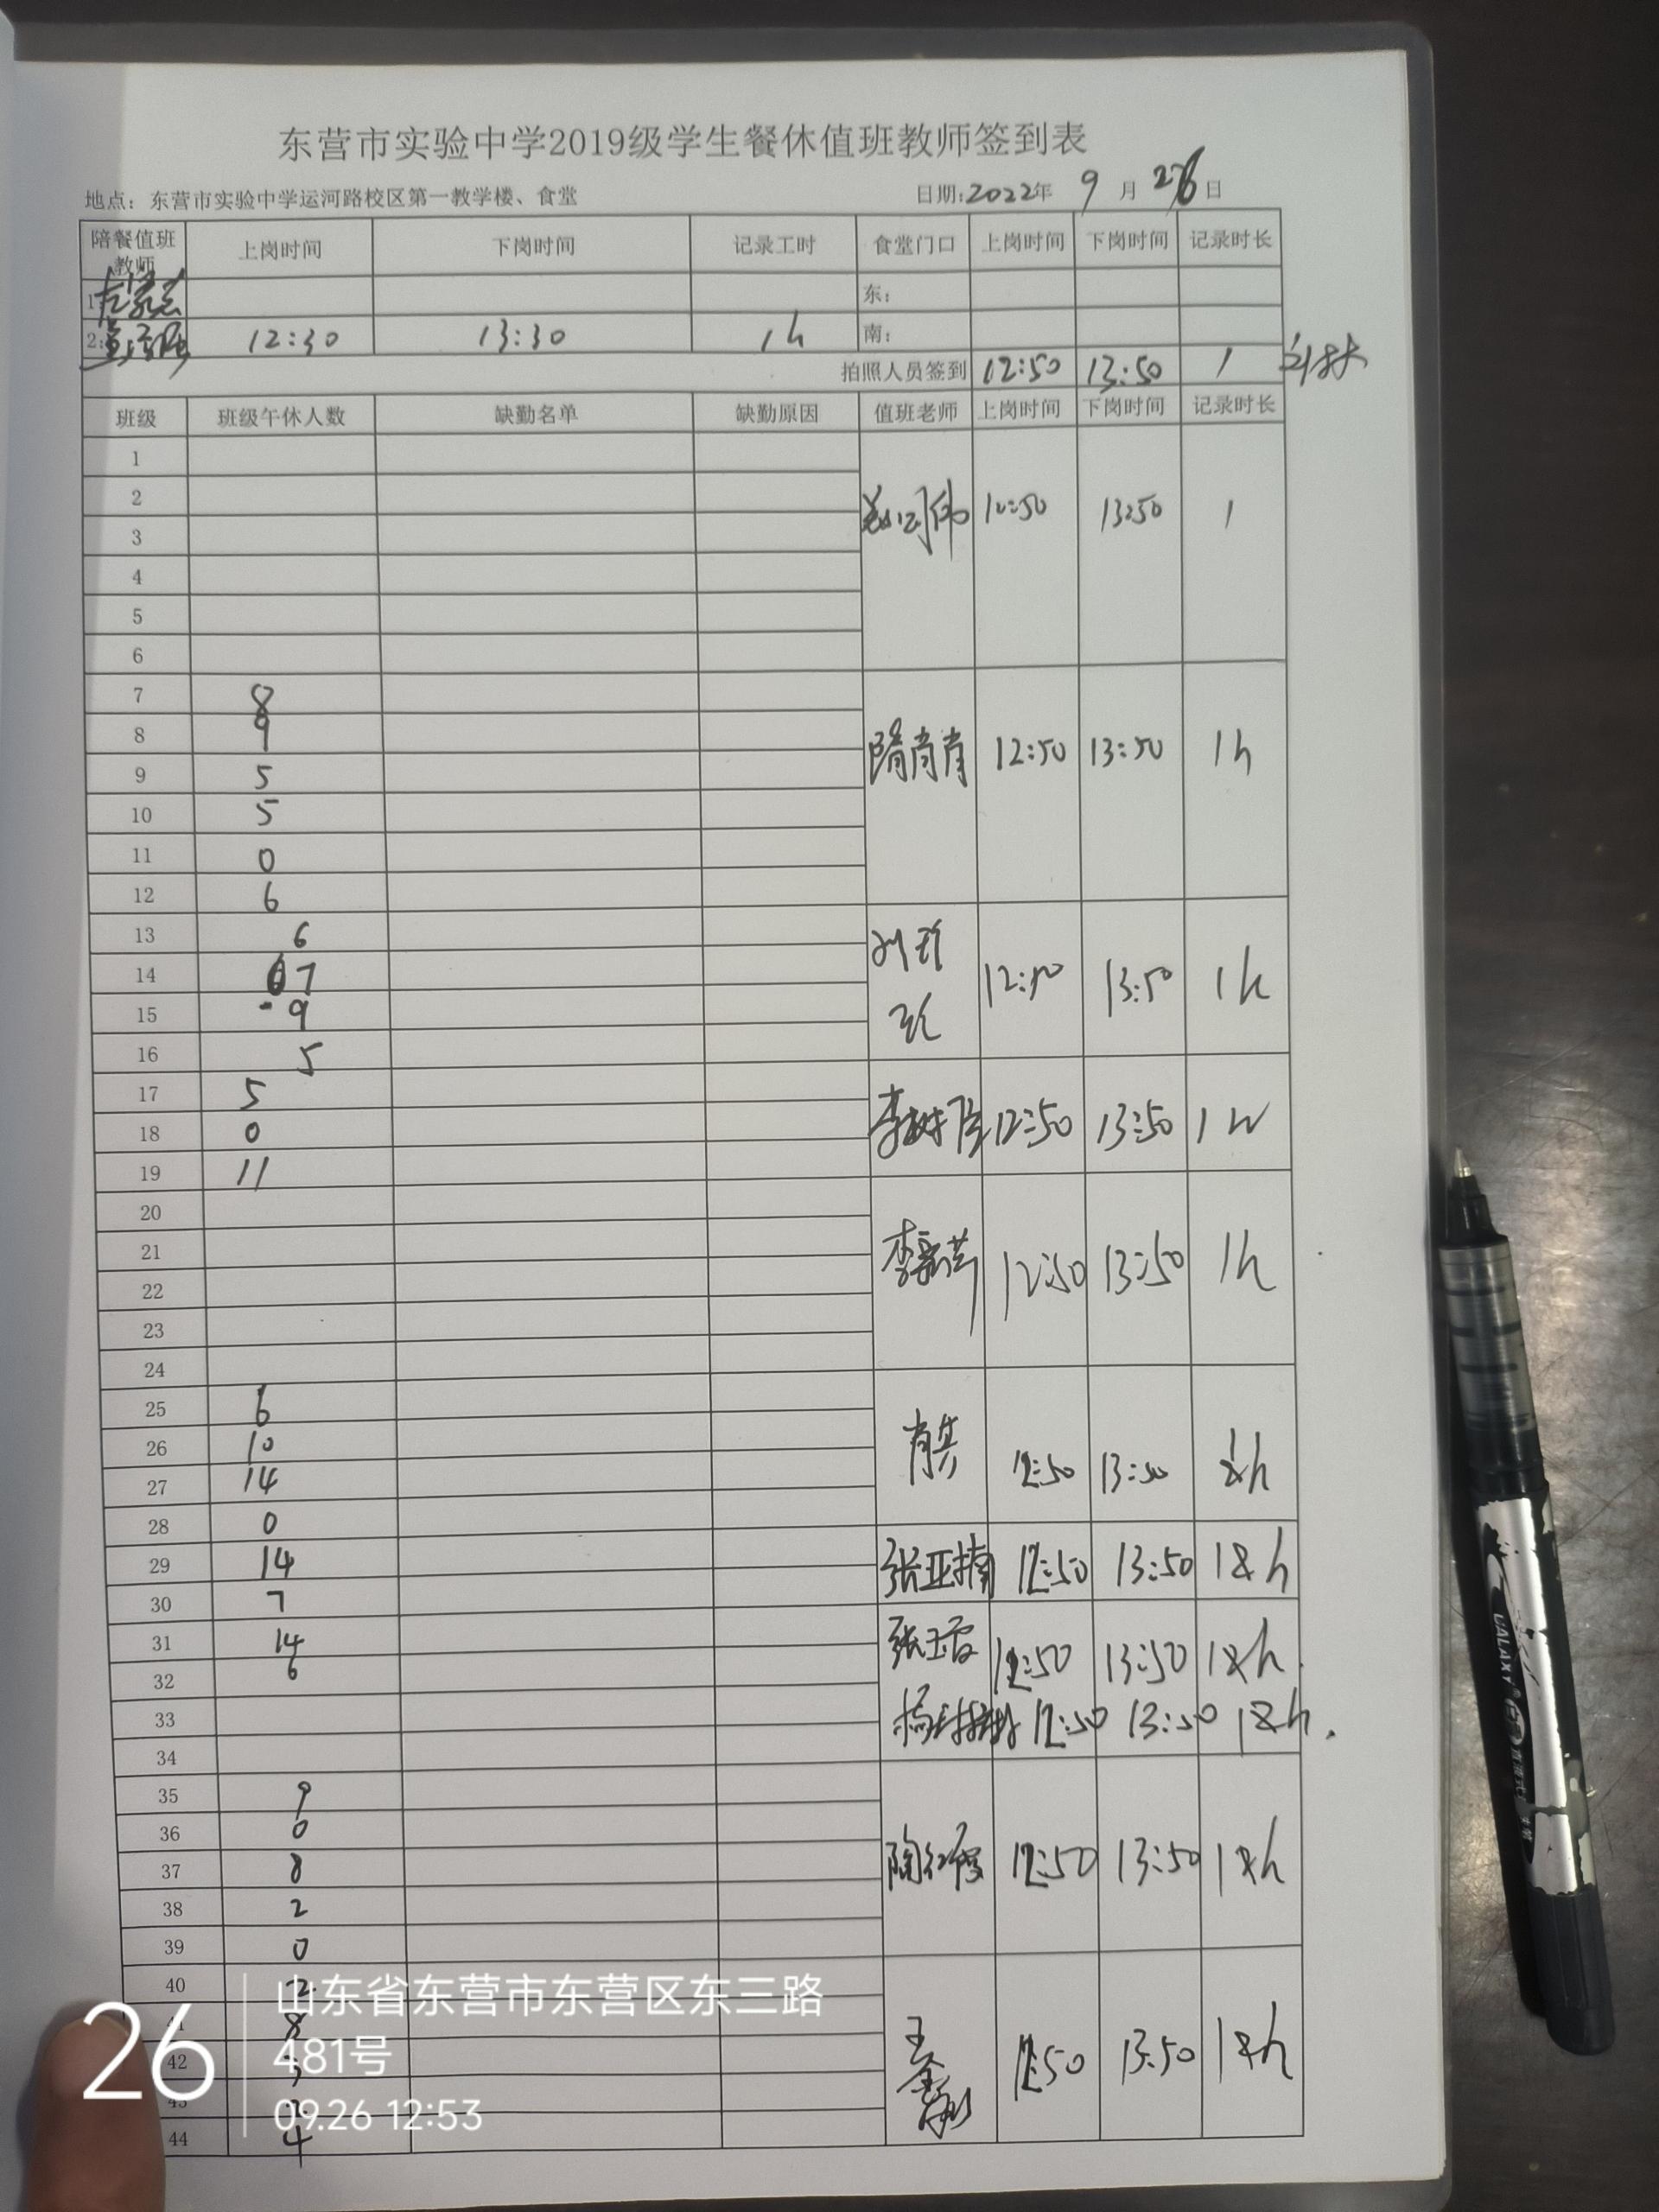 东营市实验中学2019级学生餐休值班教师签到表
地点：东营市实验中学运河路校区第一教学楼、食堂 日期:2022年 9 月 26 日
陪餐值班教师 上岗时间 下岗时间 记录工时 食堂门口 上岗时间 下岗时间 记录时长
1 东：
2: 12:30 13:30 1h 南：
拍照人员签到 12:50 13:50 1
班级 班级午休人数 缺勤名单 缺勤原因 值班老师 上岗时间 下岗时间 记录时长
1
2 12:50 13:50 1
3
4
5
6
7 8
8 9 隋肖肖 12:50 13:50 1h
9 5
10 5
11 0
12 6
13 6
14 7 12:50 13:50 1h
15 9
16 5
17 5
18 0 12:50 13:50 1h
19 11
20
21 12:50 13:50 1h
22
23
24
25 6
26 10 肖芸 12:50 13:50 1h
27 14
28 0
29 14 张亚楠 12:50 13:50 1h
30 7
31 14 12:50 13:50 1h
32 6
33 12:50 13:50 1h
34
35 9
36 0
37 8 陶红霞 12:50 13:50 1h
38 2
39 0
40 2
41 8
42 3 12:50 13:50 1h
43 2
44 4
26
山东省东营市东营区东三路
481号
09.26 12:53